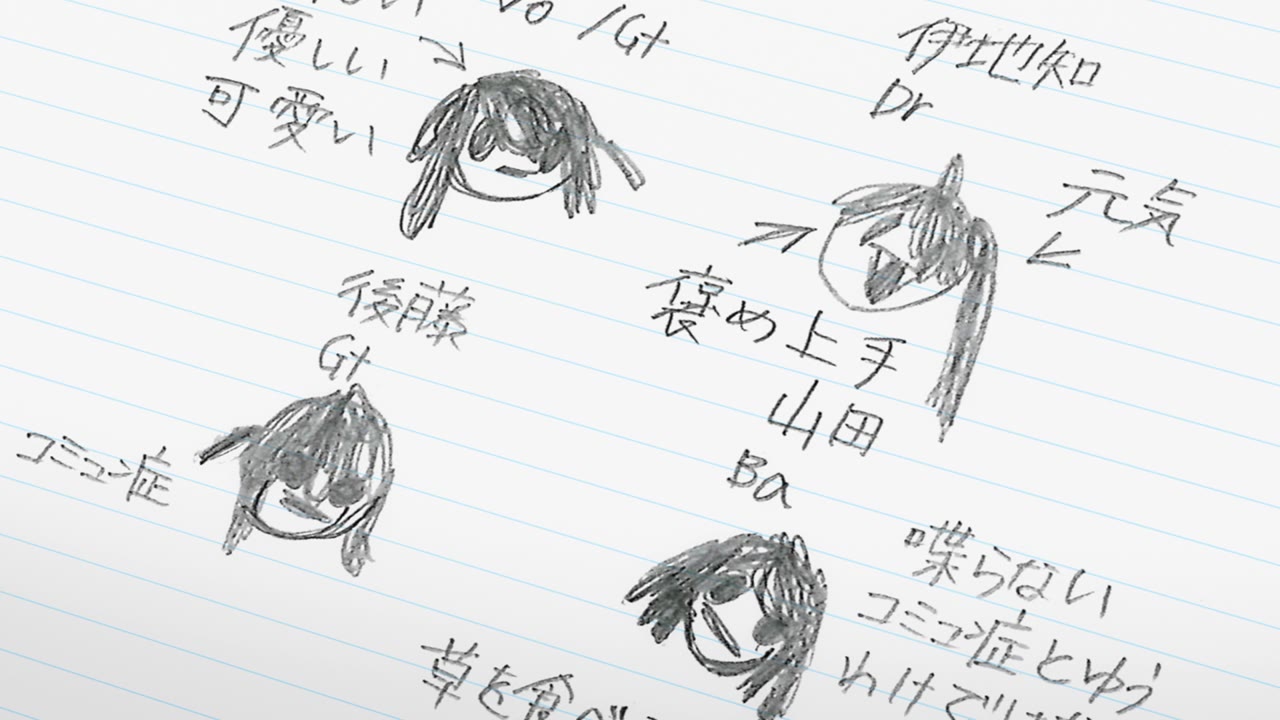 Vo/Gt
優しい
可愛い
伊地知
Dr
元気
褒め上手
後藤
Gt
コミュ症
山田
Ba
喋らない
コミュ症とゆう
わけでは
草を食べ